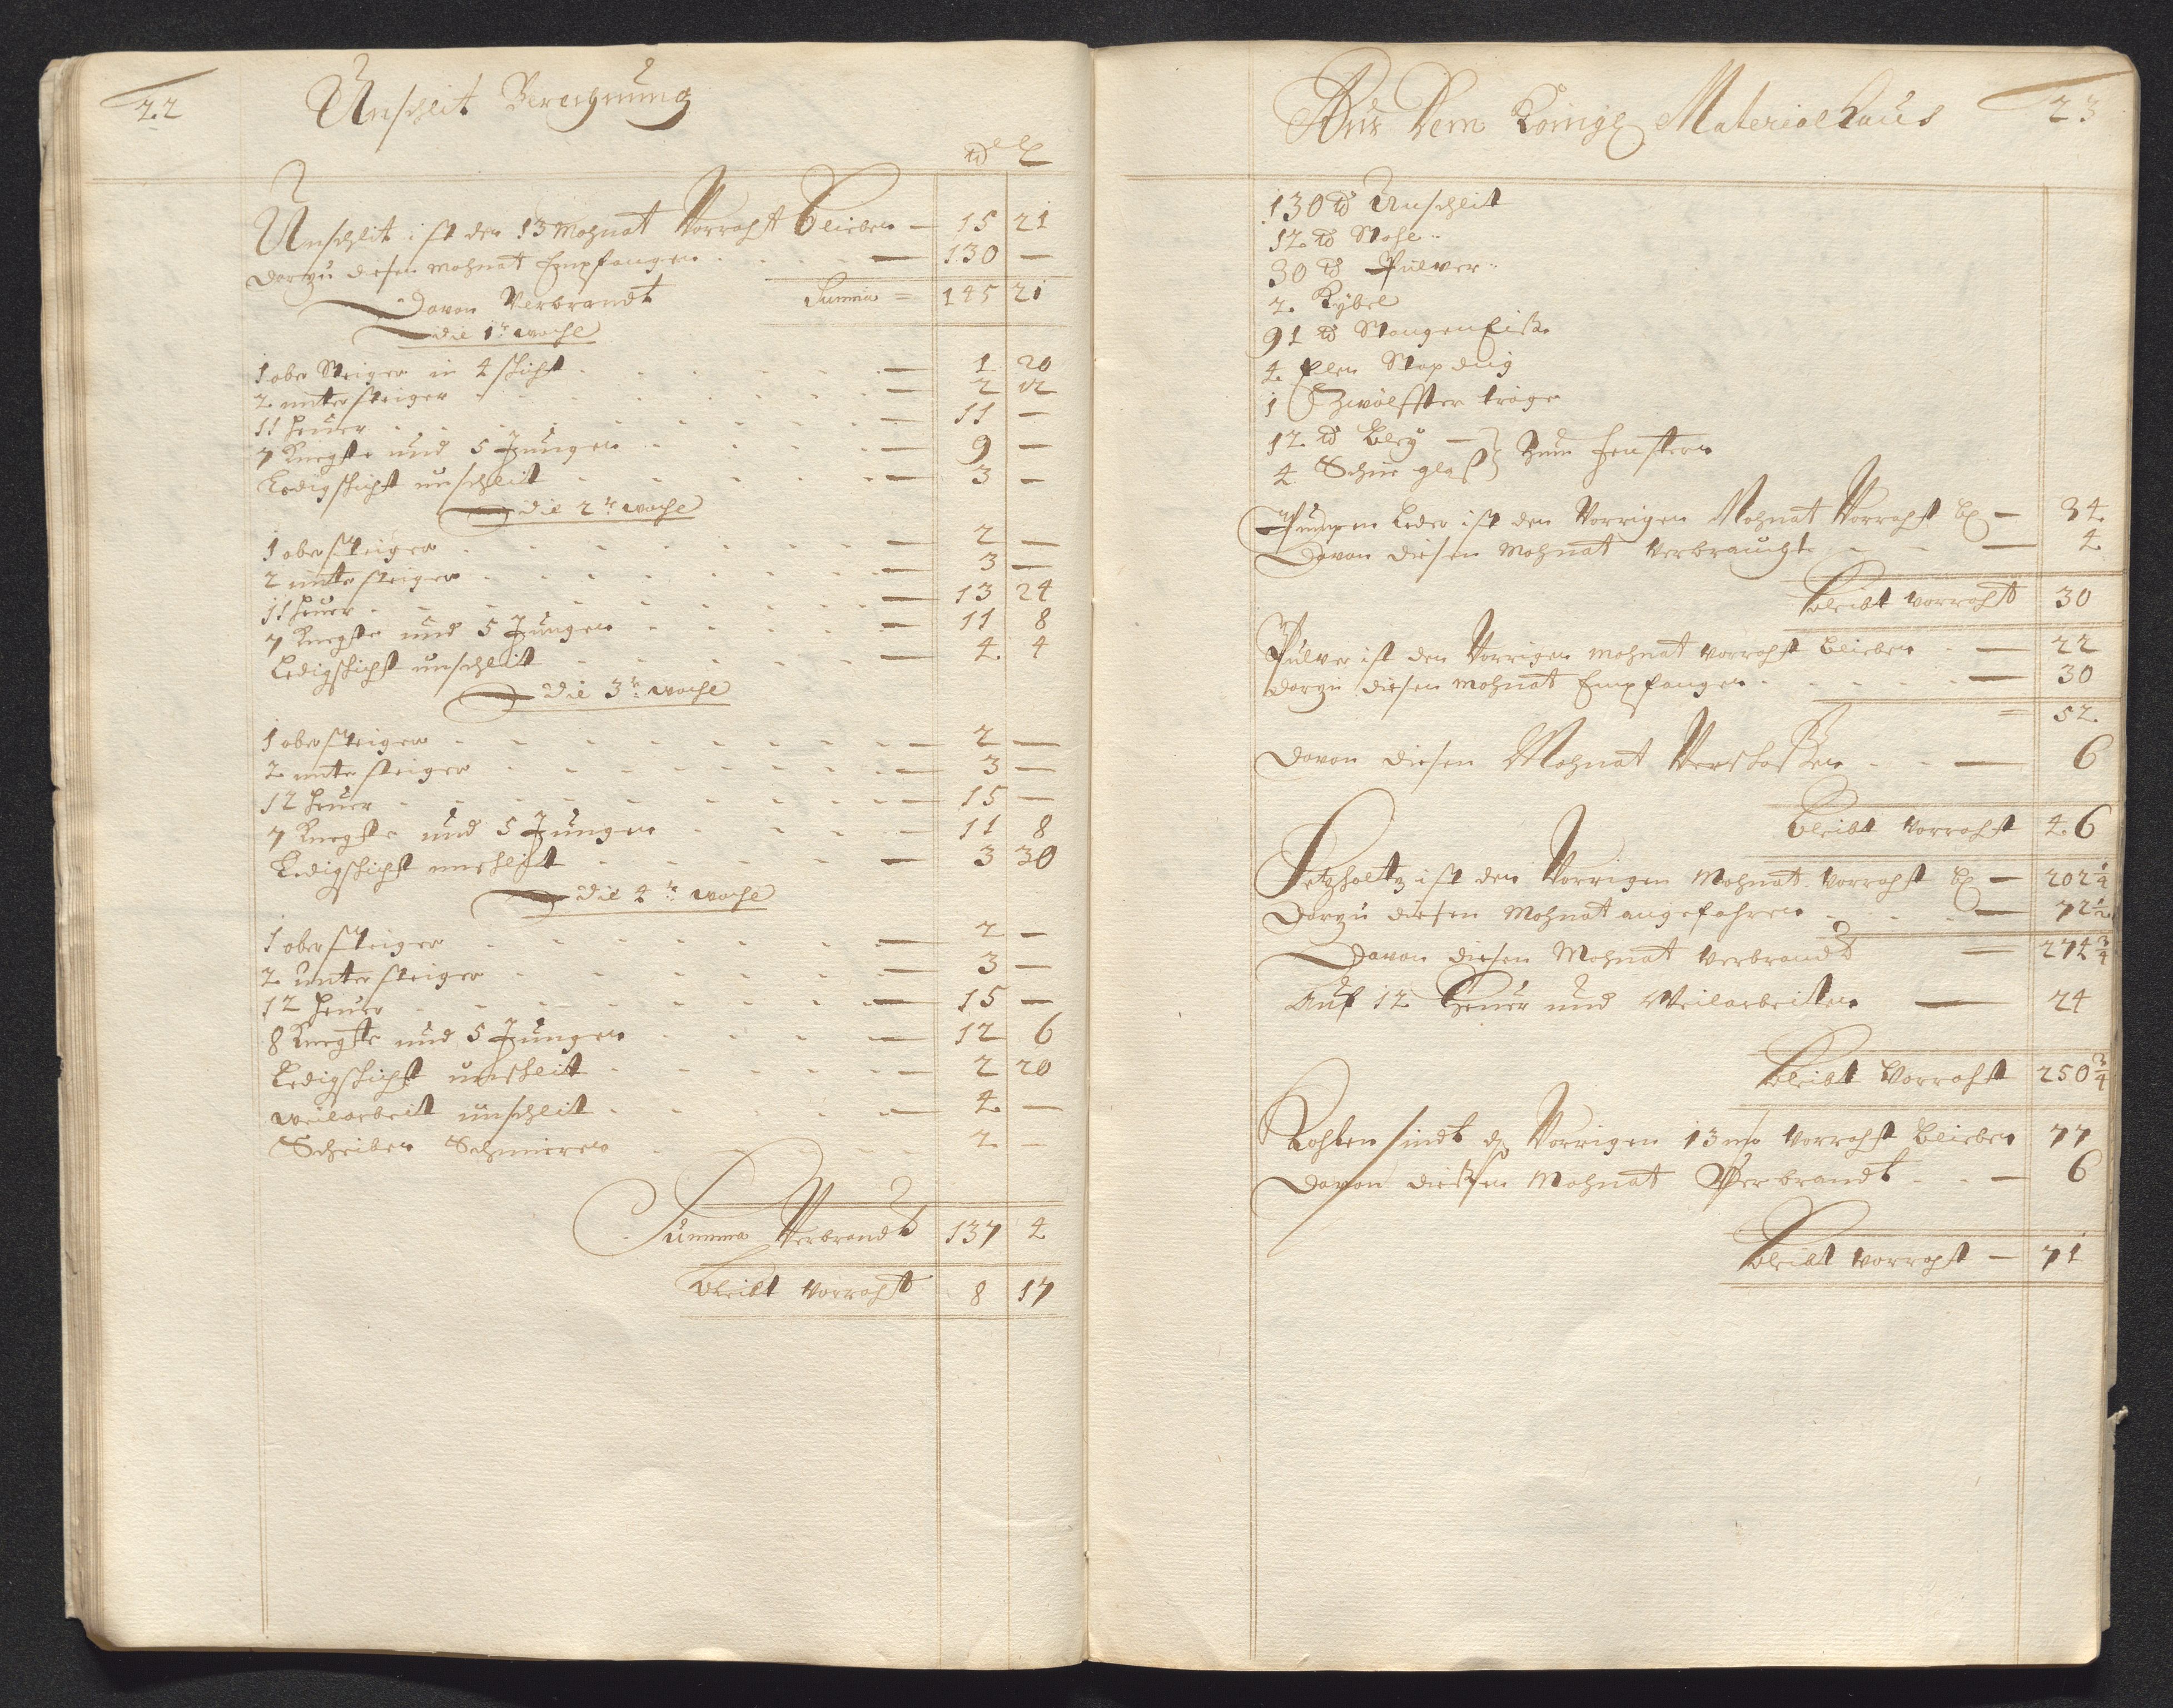 22
Unschlit Berechnung
℔ L
Unschlit ist den 13 Mohnat Vorraht blieben — 15 21
darzu diesen mohnat Empfangen — 130 —
Summa = 145 21
Davon Verbrandt
die 1te woche
1 ober Steiger in 4 schicht — 1 20
2 unter steiger — 2 12
11 heuer — 11 —
7 Knechte und 5 Jungen — 9 —
Ledigschicht unschleit — 3 —
die 2te woche
1 obersteiger — 2 —
2 unter steiger — 3 —
11 heuer — 13 24
7 Knechte und 5 Jungen — 11 8
Ledigschicht unschleit — 4 4
die 3te woche
1 obersteiger — 2 —
2 unter steiger — 3 —
12 heuer — 15 —
7 Knechte und 5 Jungen — 11 8
Ledigschicht unschlit — 3 30
die 4te woche
1 obersteiger — 2 —
2 unter steiger — 3 —
12 heuer — 15 —
8 Knechte und 5 Jungen — 12 6
Ledigschicht unschleit — 2 20
weilarbeit unschleit — 4 —
Scheiben Schmieren 2 —
Summa Verbrandt 137 4
bleibt vorraht 8 17
Aus Dem Königl Materialhaus 23
130 ℔ Unschleit
12 ℔ Stahl
30 ℔ Pulver
2 Kybel
91 ℔ Stangen Eisen
4 Elen
1 Zwölffter tröge
12 ℔ Bley — zum fenstern
4 glaß
Pumpen Leder ist den Vorrigen Mohnat Vorraht bl — 34
Davon diesen Mohnat verbraucht — 4
bleibt vorraht 30
Pulver ist den Vorrigen mohnat vorraht blieben — 22
darzu diesen mohnat Empfangen — 30
= 52
davon diesen Mohnat Verschoßen — 6
bleibt vorraht 46
Setzholtz ist den Vorrigen Mohnat vorraht bl — 202 1/4
Darzu diesen Mohnat angefahren — 72 1/2
Davon diesen Mohnat verbrandt = 274 3/4
Auf 12 Heuer und Weilarbeiten — 24
bleibt Vorraht 250 3/4
Kohlen sindt d Vorrigen 13 mo vorraht blieben 77
Davon dießen Mohnat Verbrandt — 6
bleibt vorraht — 71